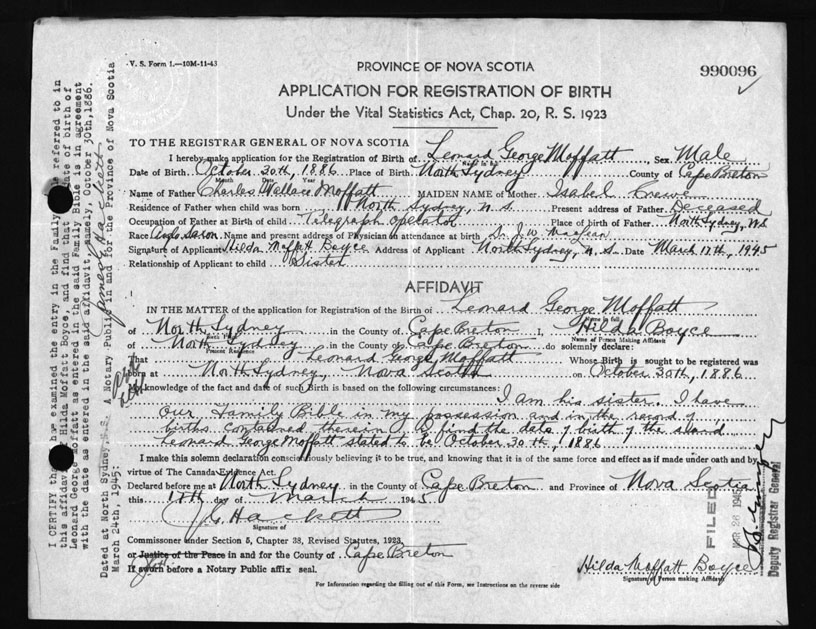 V. S. Form 1.—10M-11-43
990096
PROVINCE OF NOVA SCOTIA
APPLICATION FOR REGISTRATION OF BIRTH
Under the Vital Statistics Act, Chap. 20, R. S. 1923
TO THE REGISTRAR GENERAL OF NOVA SCOTIA
I hereby make application for the Registration of Birth of Leonard George Moffatt, Sex Male
Date of Birth October 30th, 1886 Place of Birth North Sydney County of Cape Breton
Month Date Year
Name of Father Charles Wallace Moffatt MAIDEN NAME of Mother Isabel Crewe
Residence of Father when child was born North Sydney, N.S. Present address of Father Deceased
Occupation of Father at Birth of child Telegraph Operator Place of birth of Father North Sydney, N.S.
Race Anglo Saxon Name and present address of Physician in attendance at birth
Signature of Applicant Hilda Moffatt Boyce Address of Applicant North Sydney, N.S. Date March 17th, 1945
Relationship of Applicant to child Sister
AFFIDAVIT
IN THE MATTER of the application for Registration of the Birth of Leonard George Moffatt
of North Sydney in the County of Cape Breton I, Hilda Boyce
Birth Place
Name of Person Making Affidavit
of North Sydney in the County of Cape Breton do solemnly declare:
Present Residence
That Leonard George Moffatt Whose Birth is sought to be registered was
born at North Sydney, Nova Scotia on October 30th, 1886
My knowledge of the fact and date of such Birth is based on the following circumstances: I am his sister. I have
our Family Bible in my possession and in the record of
births contained therein I find the date of birth of the said
Leonard George Moffatt stated to be October 30th, 1886
I make this solemn declaration conscientiously believing it to be true, and knowing that it is of the same force and effect as if made under oath and by
virtue of The Canada Evidence Act.
Declared before me at North Sydney in the County of Cape Breton and Province of Nova Scotia
this 17th day of March 1945
J. G. Hackett
Signature of
Commissioner under Section 5, Chapter 38, Revised Statutes, 1923,
or Justice of the Peace in and for the County of Cape Breton
If sworn before a Notary Public affix seal.
Hilda Moffatt Boyce
Signature of Person making Affidavit
For Information regarding the filling out of this Form, see Instructions on the reverse side
I CERTIFY that I have examined the entry in the Family Bible referred to in
this affidavit of Hilda Moffatt Boyce, and find that the date of birth of
Leonard George Moffatt as entered in the said Family Bible is in agreement
with the date as entered in the said affidavit, namely, October 30th, 1886.
Dated at North Sydney, N.S.
March 24th, 1945:
A Notary Public in and for the Province of Nova Scotia
FILED
MAR 26 1945
Deputy Registrar General